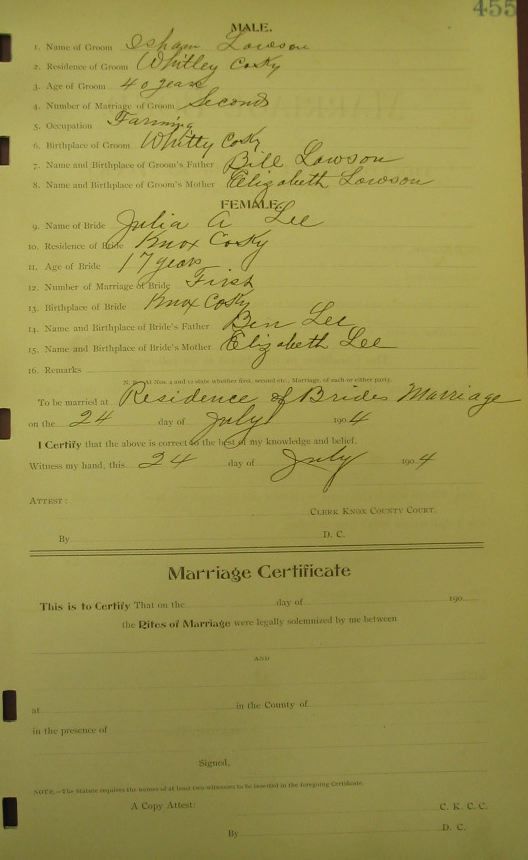 455
MALE.
1. Name of Groom Isham Lawson
2. Residence of Groom Whitley Co Ky
3. Age of Groom 40 years
4. Number of Marriage of Groom Second
5. Occupation Farming
6. Birthplace of Groom Whitty Co Ky
7. Name and Birthplace of Groom's Father Bill Lawson
8. Name and Birthplace of Groom's Mother Elizabeth Lawson
FEMALE.
9. Name of Bride Julia A Lee
10. Residence of Bride Knox Co Ky
11. Age of Bride 17 years
12. Number of Marriage of Bride First
13. Birthplace of Bride Knox Co Ky
14. Name and Birthplace of Bride's Father Ben Lee
15. Name and Birthplace of Bride's Mother Elizabeth Lee
16. Remarks
N. B.—At Nos. 4 and 12 state whether first, second etc., Marriage, of each or either party.
To be married at Residence of Brides Marriage
on the 24 day of July 1904
I Certify that the above is correct to the best of my knowledge and belief.
Witness my hand, this 24 day of July 1904
ATTEST:
CLERK KNOX COUNTY COURT.
By D. C.
Marriage Certificate
This is to Certify That on the day of 190
the Rites of Marriage were legally solemnized by me between
AND
at in the County of
in the presence of
Signed,
NOTE.—The Statute requires the names of at least two witnesses to be inserted in the foregoing Certificate.
A Copy Attest: C. K. C. C.
By D. C.